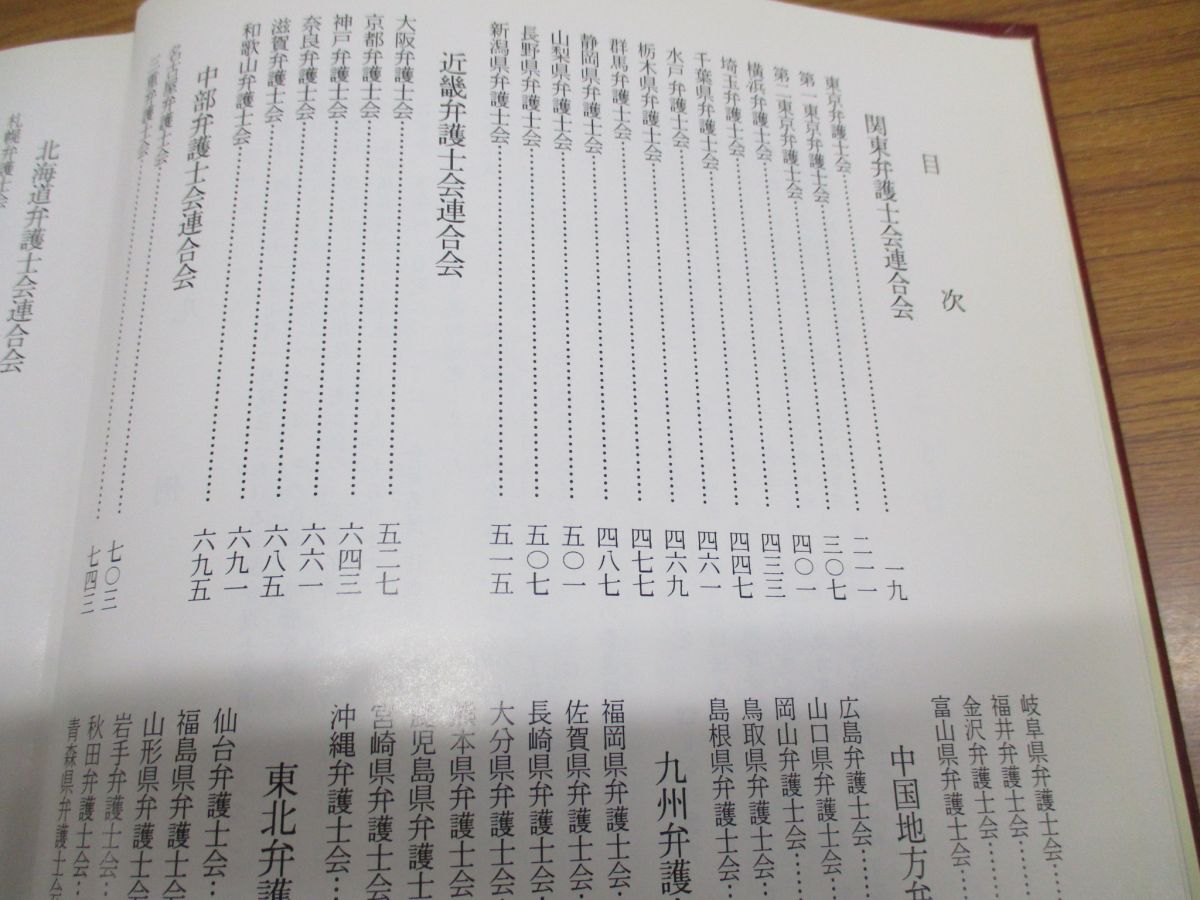 目次
関東弁護士会連合会
東京弁護士会……一九
第一東京弁護士会……二一一
第二東京弁護士会……三〇七
横浜弁護士会……四〇一
埼玉弁護士会……四三三
千葉県弁護士会……四四七
水戸弁護士会……四六一
栃木県弁護士会……四六九
群馬弁護士会……四七七
静岡県弁護士会……四八七
山梨県弁護士会……五〇一
長野県弁護士会……五〇七
新潟県弁護士会……五一五
近畿弁護士会連合会
大阪弁護士会……五二七
京都弁護士会……六四三
神戸弁護士会……六六一
奈良弁護士会……六八五
滋賀弁護士会……六九一
和歌山弁護士会……六九五
中部弁護士会連合会
名古屋弁護士会……七〇三
三重弁護士会……七四三
岐阜県弁護士会……
福井弁護士会……
金沢弁護士会……
富山県弁護士会……
中国地方弁
広島弁護士会……
山口県弁護士会……
岡山弁護士会……
鳥取県弁護士会……
島根県弁護士会……
九州弁護
福岡県弁護士会……
佐賀県弁護士会……
長崎県弁護士会……
大分県弁護士会……
熊本県弁護士会……
鹿児島県弁護士
宮崎県弁護士会
沖縄弁護士会……
東北弁護
仙台弁護士会……
福島県弁護士会……
山形県弁護士会……
岩手弁護士会……
秋田弁護士会……
青森県弁護士会
北海道弁護士会連合会
札幌弁護士会